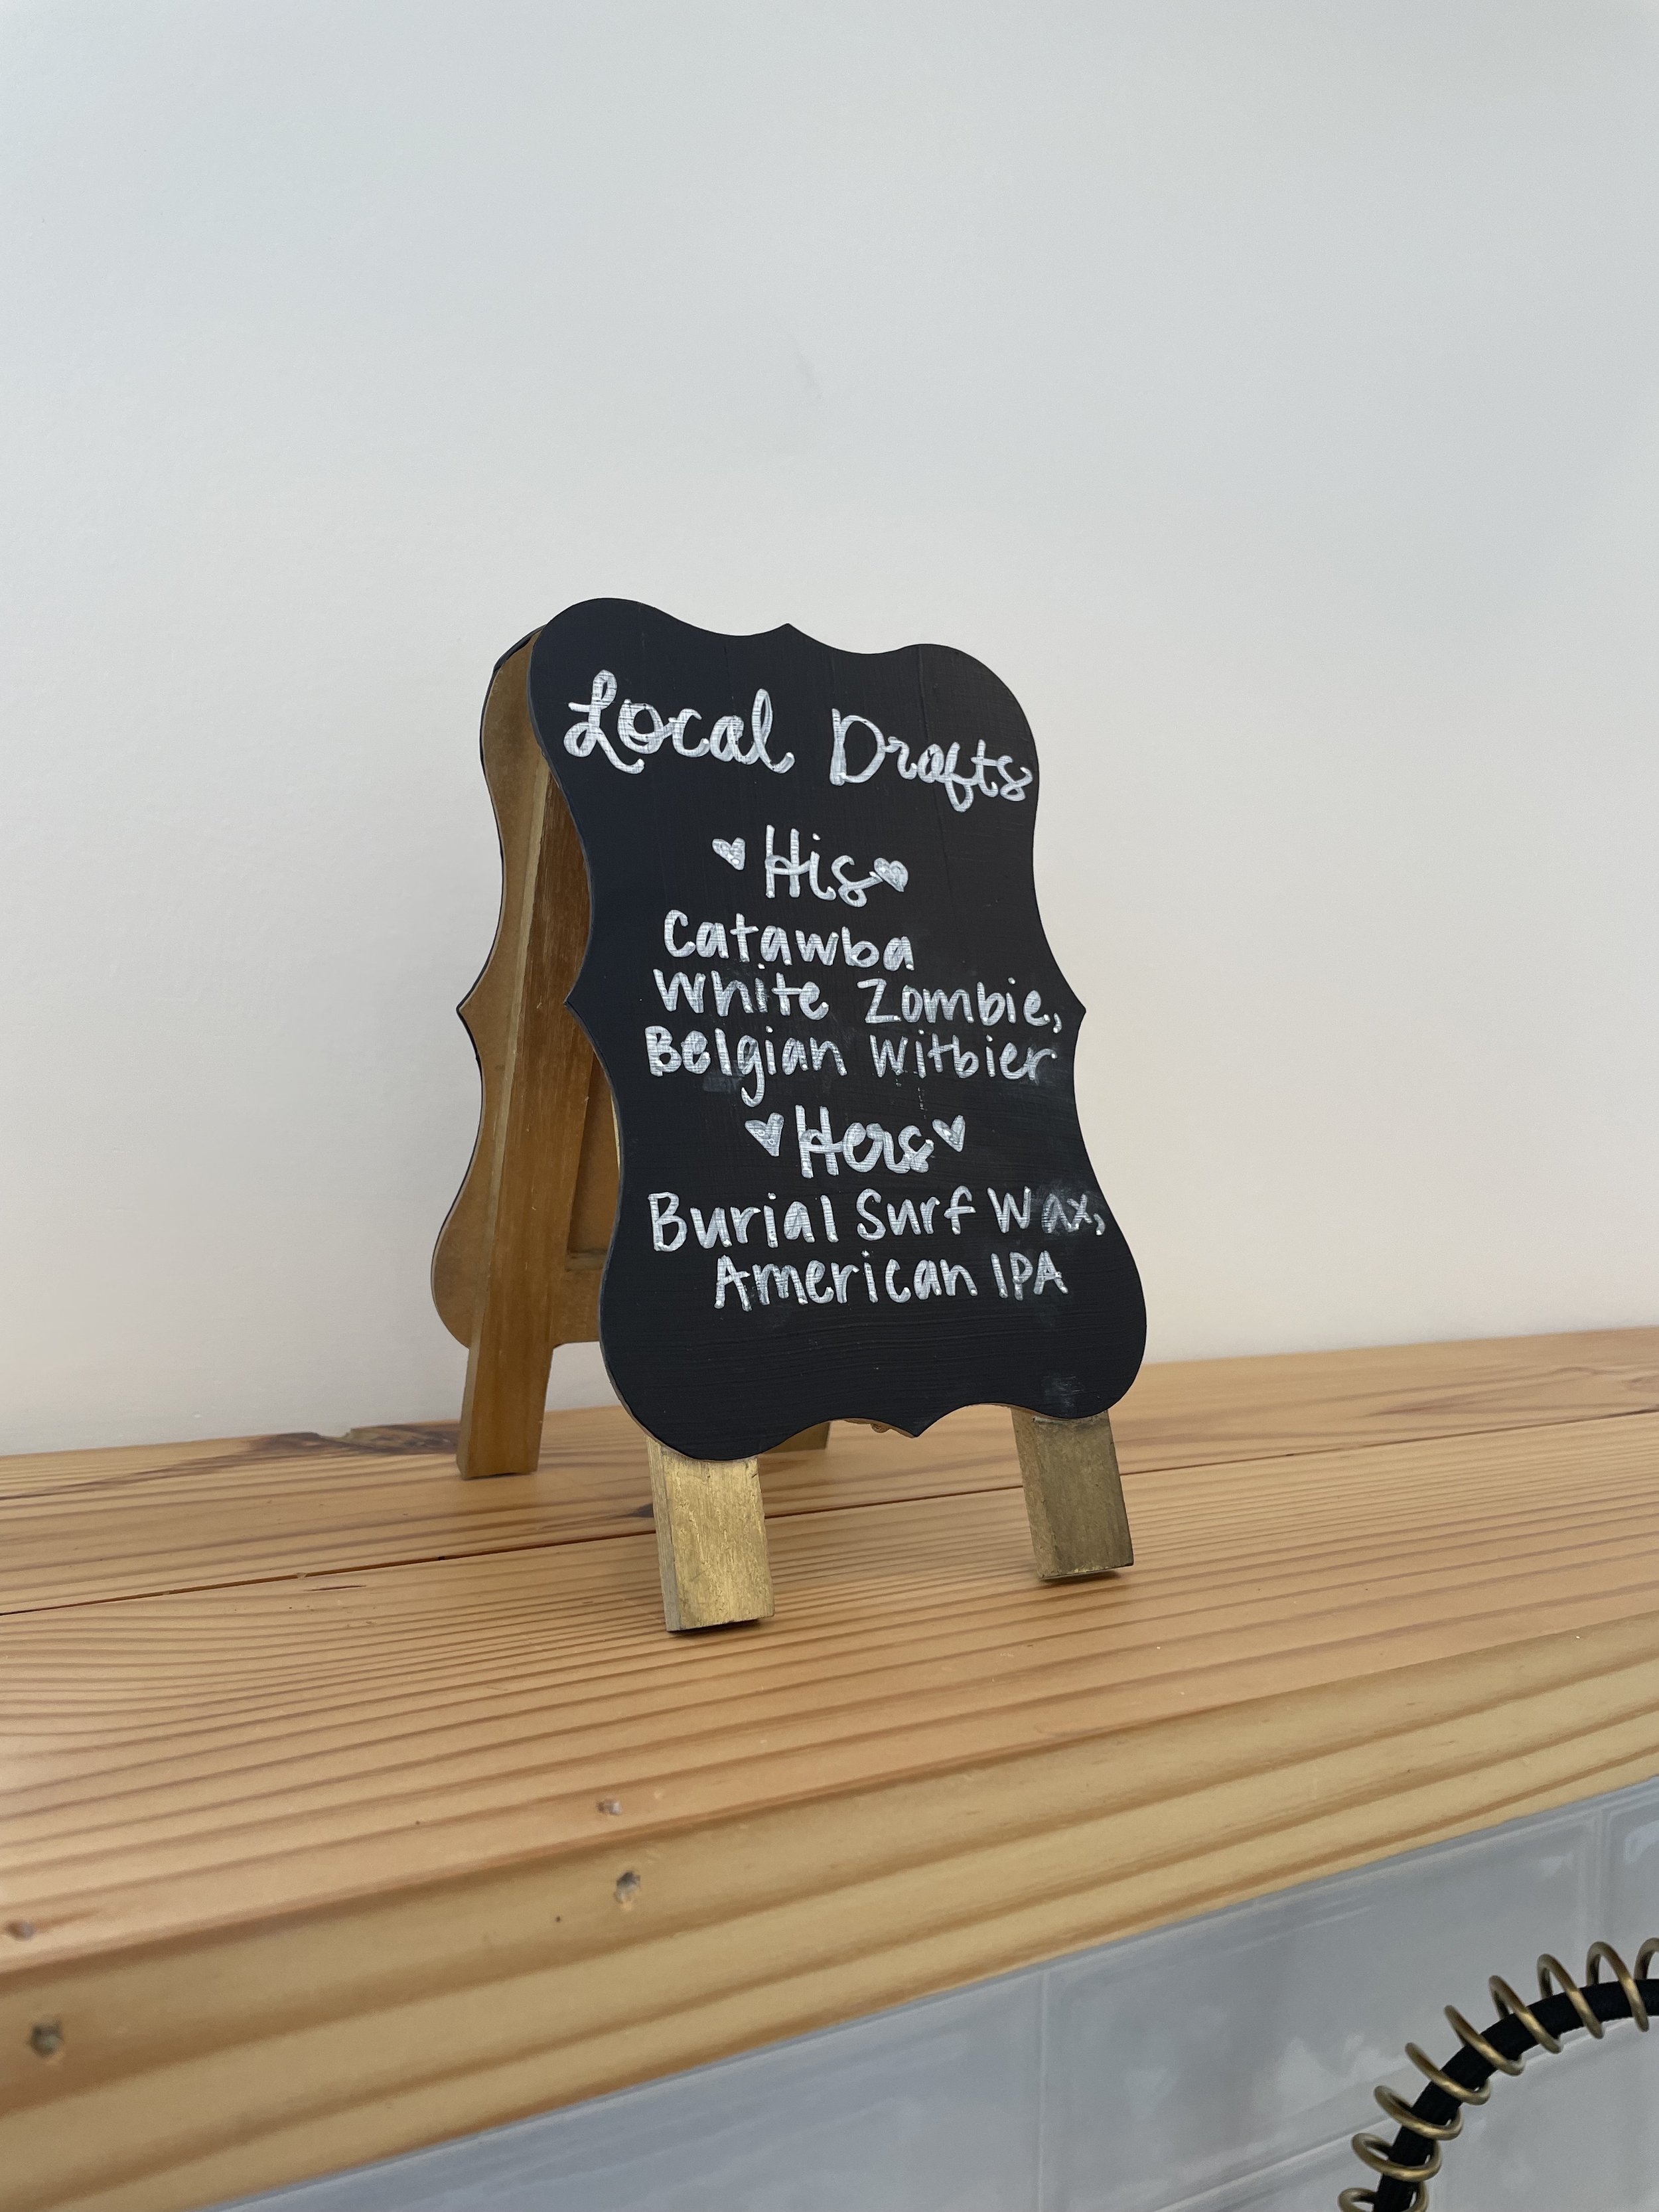 Local Drafts
♥ His ♥
Catawba
White Zombie,
Belgian Witbier
♥ Hers ♥
Burial Surf Wax,
American IPA